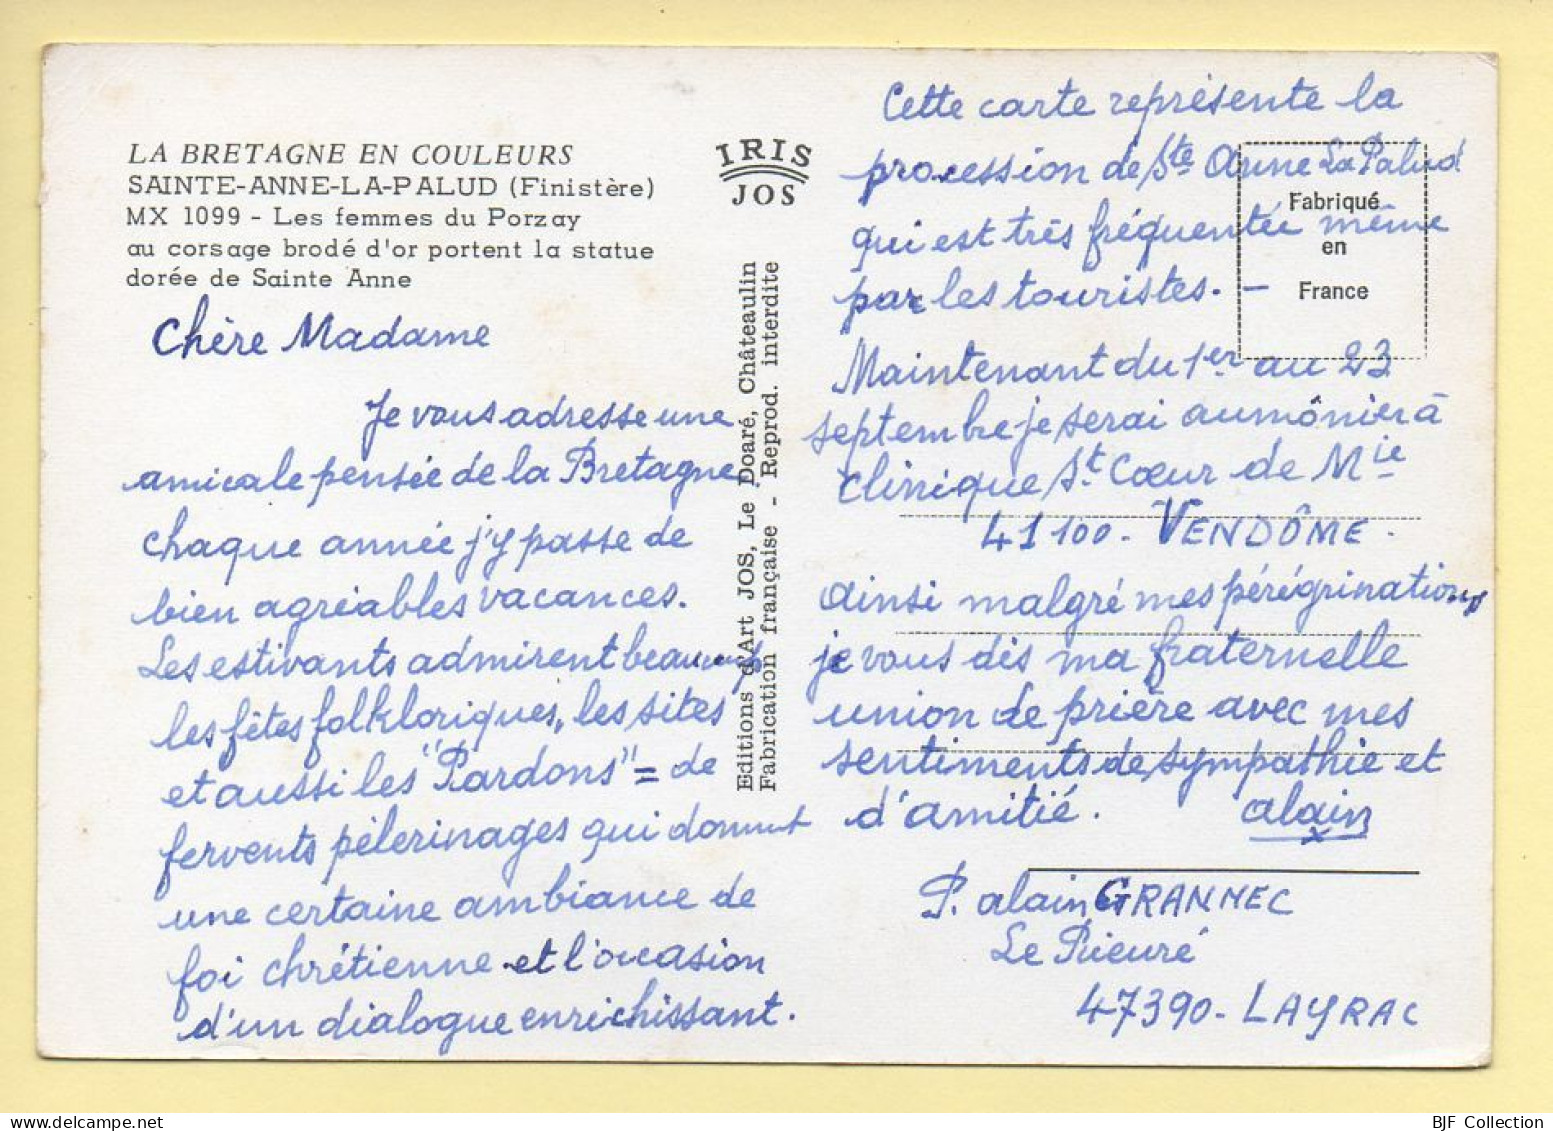 LA BRETAGNE EN COULEURS
SAINTE-ANNE-LA-PALUD (Finistère)
MX 1099 - Les femmes du Porzay
au corsage brodé d'or portent la statue
dorée de Sainte Anne
Chère Madame
Je vous adresse une
amicale pensée de la Bretagne
chaque année j'y passe de
bien agréables vacances.
Les estivants admirent beaucoup
les fêtes folkloriques, les sites
et aussi les "Pardons" = de
fervents pèlerinages qui donnent
une certaine ambiance de
foi chrétienne et l'occasion
d'un dialogue enrichissant.
IRIS
JOS
Editions d'Art JOS, Le Doaré, Châteaulin
Fabrication française - Reprod. interdite
Cette carte représente la
procession de Ste Anne La Palud
qui est très fréquentée même
par les touristes. -
Fabriqué
en
France
Maintenant du 1er au 23
septembre je serai aumônier à
clinique St Cœur de Mie
41100 - VENDÔME.
ainsi malgré mes pérégrinations
je vous dis ma fraternelle
union de prière avec mes
sentiments de sympathie et
d'amitié. alain
P. alain GRANNEC
Le Prieuré
47390 - LAYRAC
BJF Collection